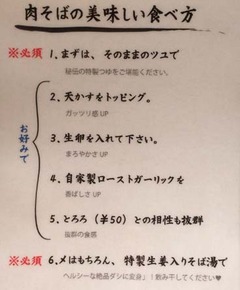 肉そばの美味しい食べ方
※必須 1.まずは、そのままのツユで
秘伝の特製つゆをご堪能ください。
お好みで
2.天かすをトッピング。
ガッツリ感 UP
3.生卵を入れて下さい。
まろやかさ UP
4.自家製ローストガーリックを
香ばしさ UP
5.とろろ(¥50)との相性も抜群
抜群の食感
※必須 6.〆はもちろん、特製生姜入りそば湯で
ヘルシーな絶品ダシに変身」!飲み干してください♥